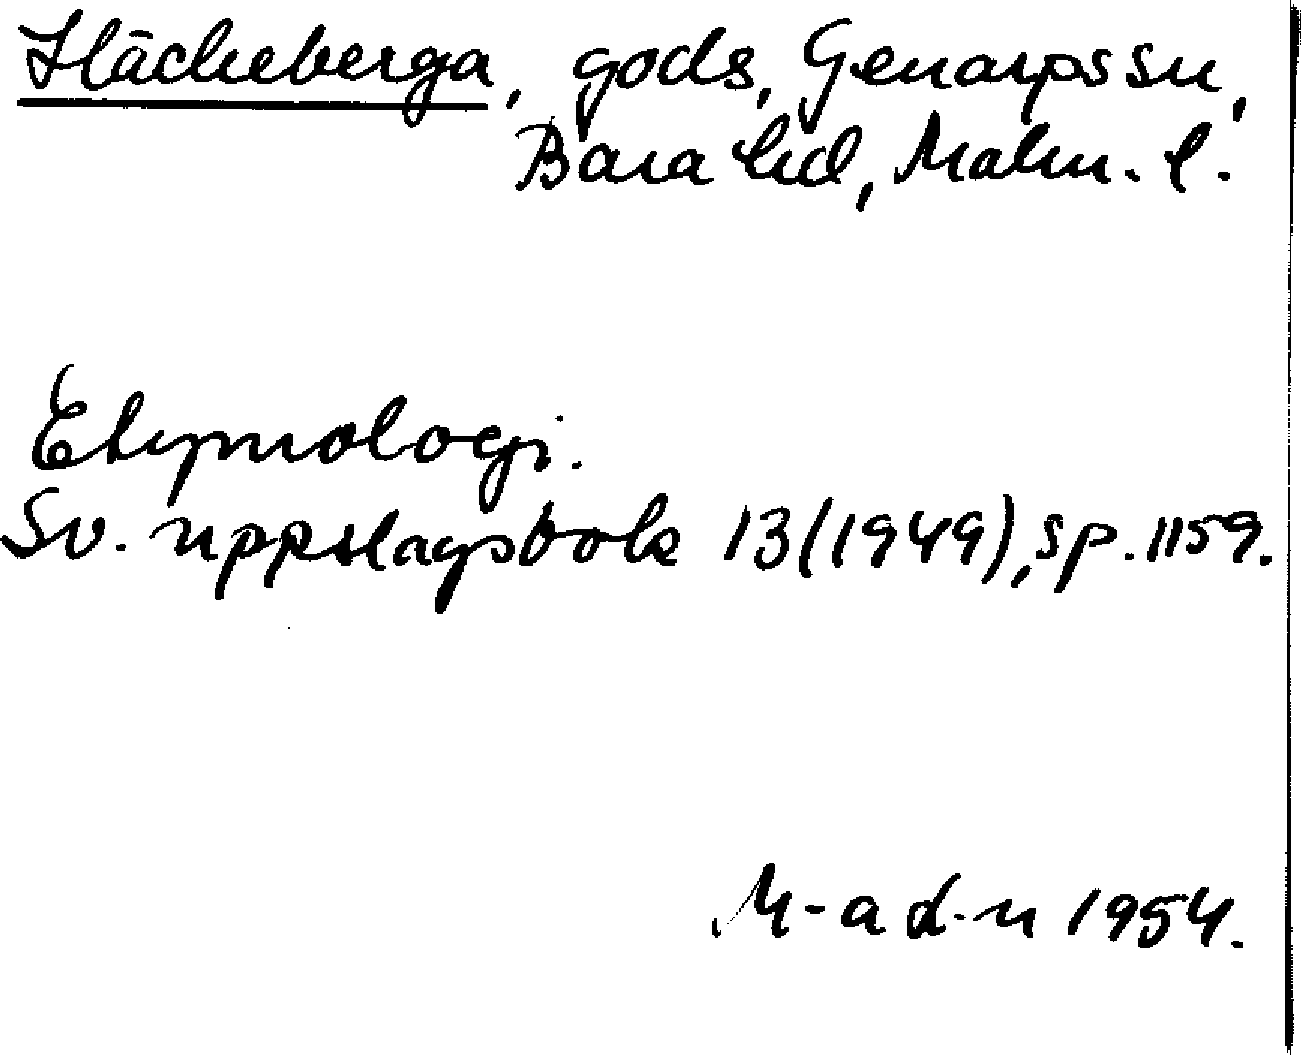 Häckeberga, gods, Genarps sn,
Bara hd, Malm. l.
Etymologi.
Sv. uppslagsbok 13 (1949), sp. 1159.
M-a d-n 1954.